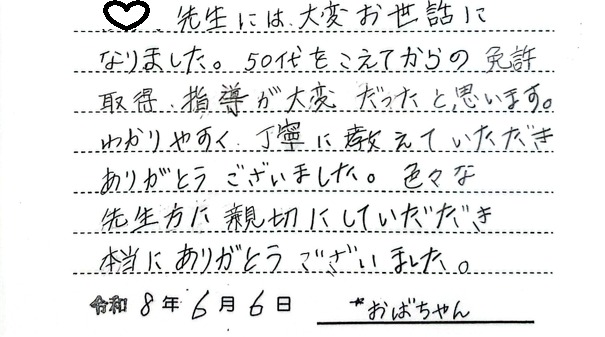 ♡先生には、大変お世話に
なりました。50代をこえてからの免許
取得、指導が大変だったと思います。
わかりやすく、丁寧に教えていただき
ありがとうございました。色々な
先生方に親切にしていただき
本当にありがとうございました。
令和8年6月6日 *おばちゃん